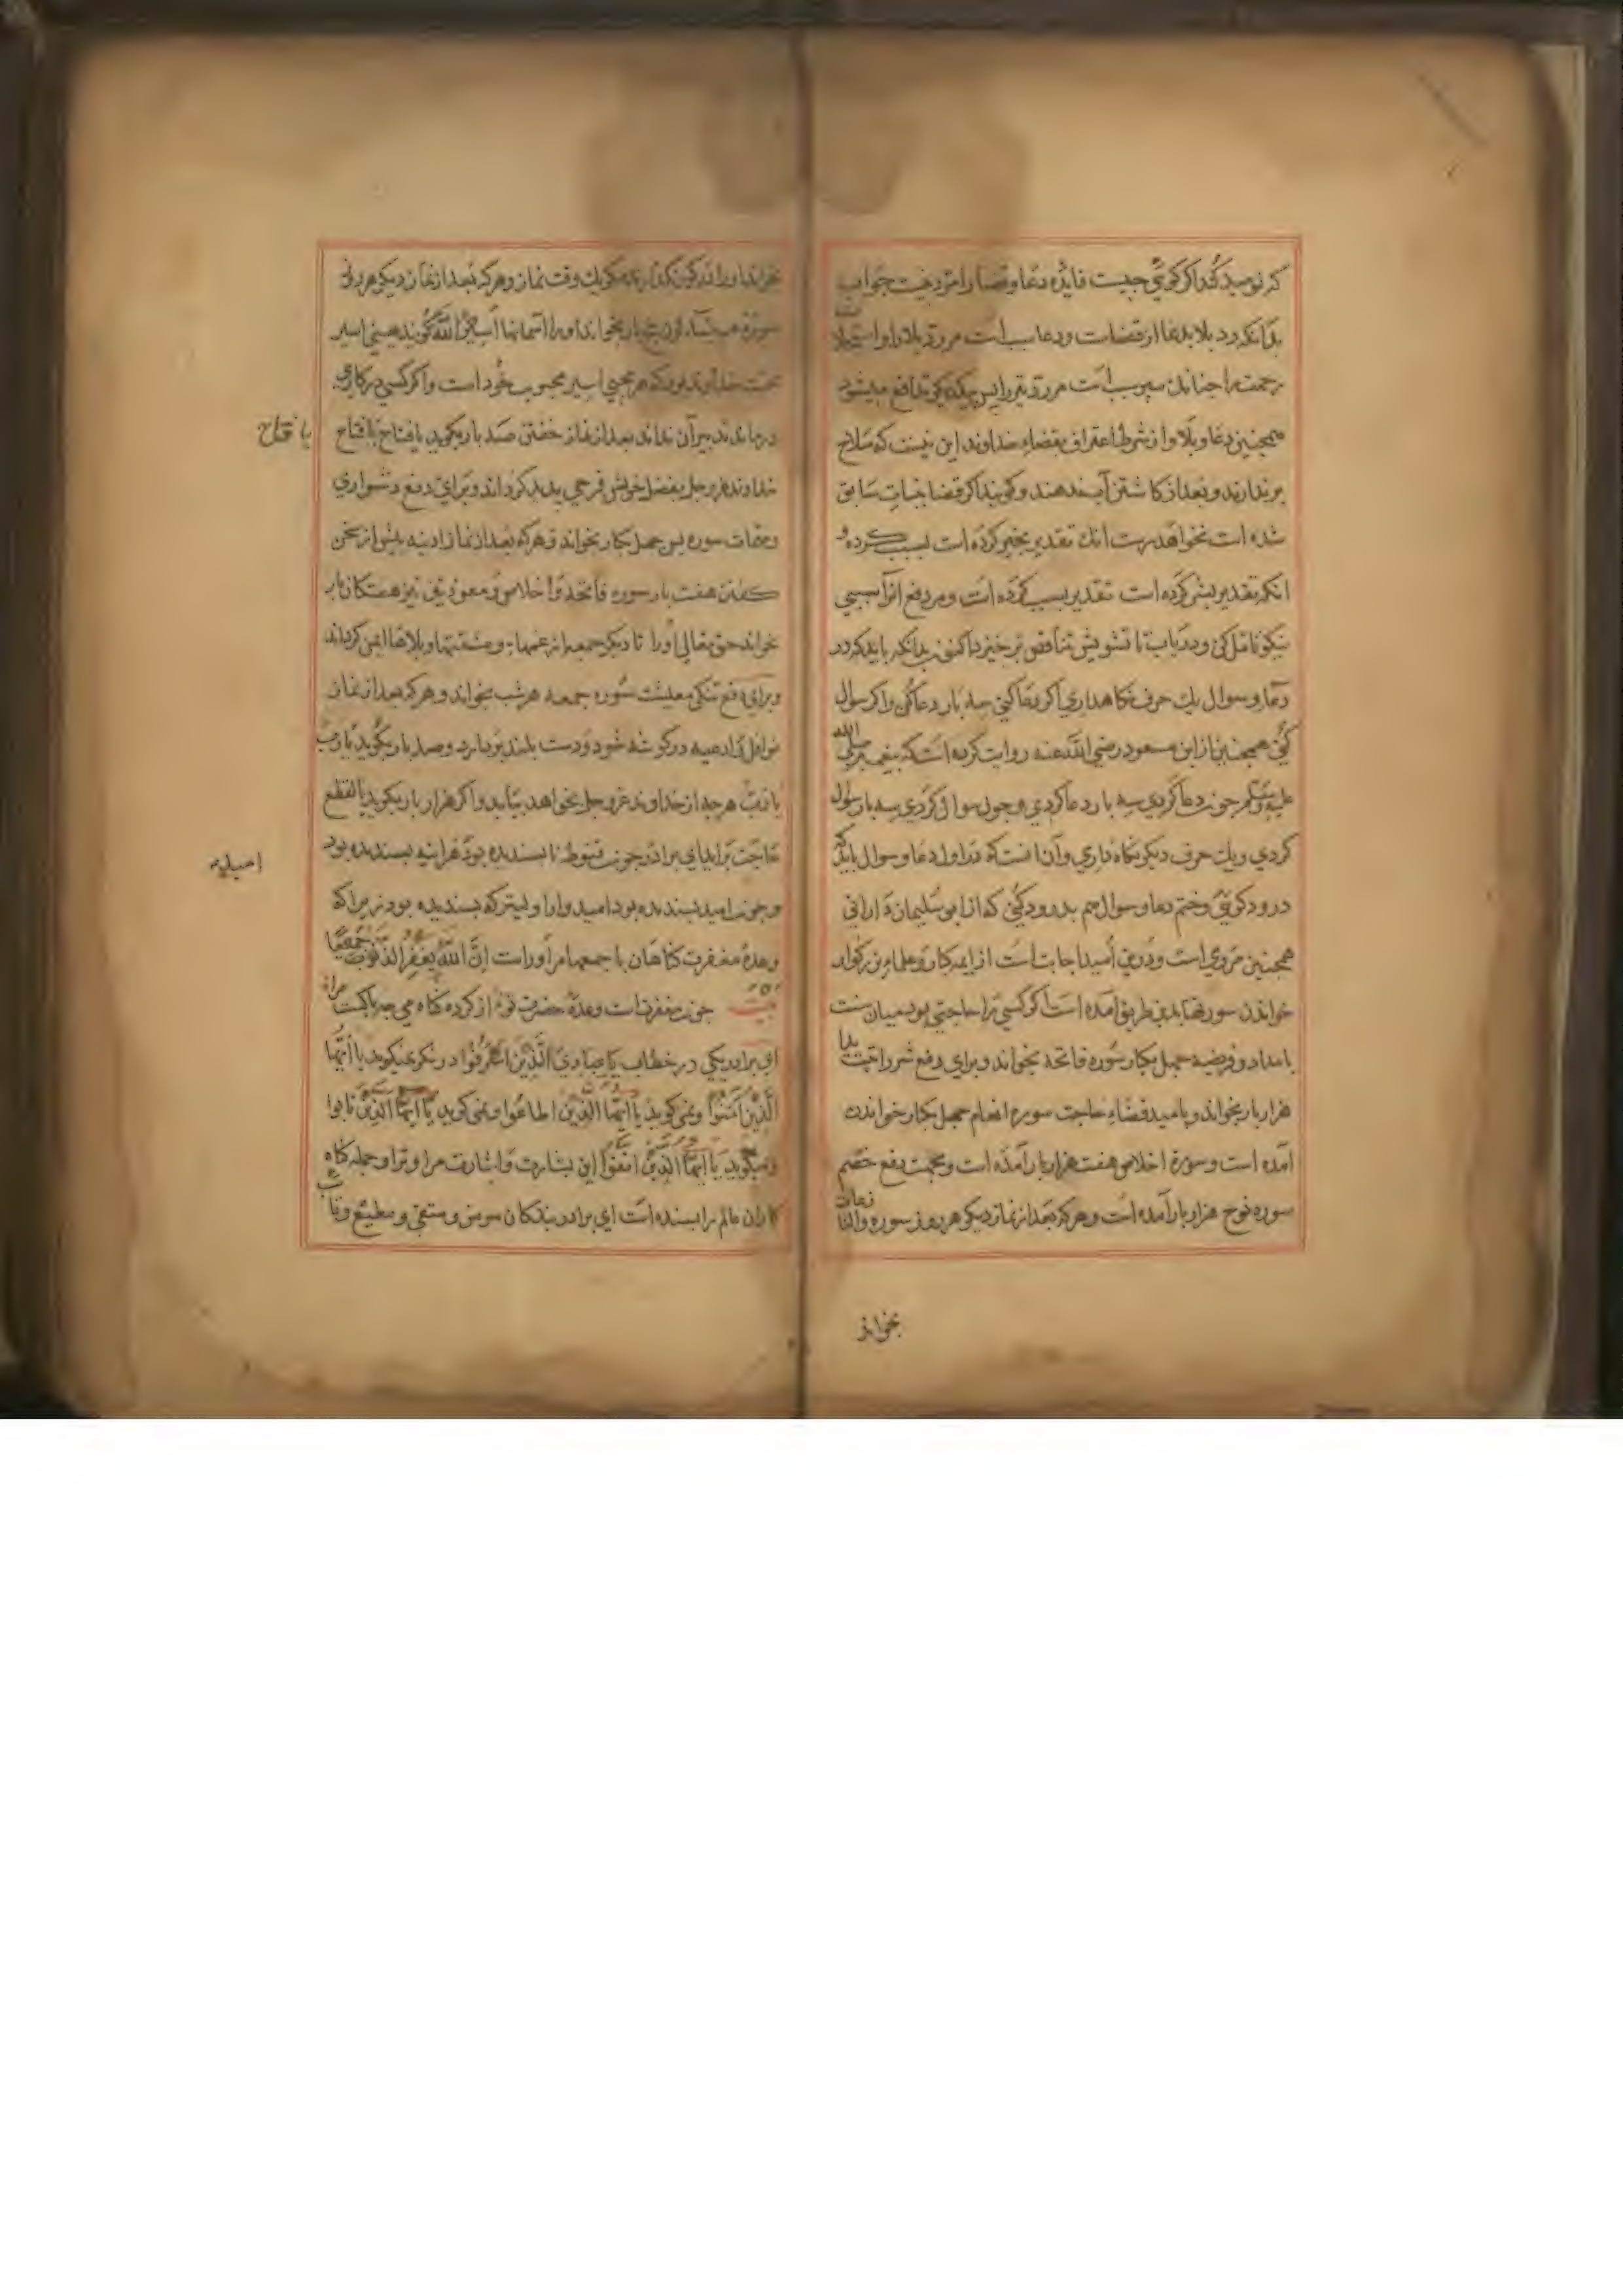 که نومید کند اگر گوئی چیست فایده دعا و قضا را مرد نیست جواب
بدانکه رد بلا بدعا از قضاست ودعا سبب است مر رد بلا را و استجلاب
رحمت را چنانك سپر سبب است مر رد تیر را پس
همچنین دعا و بلا و از شرط اعتراف بقضاء خداوند این نیست که سلاح
برندارند و بعد از کاشتن آب ندهند و گویند اگر قضا بنبات سابق
شده است بخواهد رست انك تقدیر بخیر کرده است بسبب کرده و
انکه تقدیر بشر کرده است تقدیر بسبب کرده است ومر دفع انرا سببی
نیکو تامل کن و دریاب تا تشویش تناقض بر خیزد اکنون بدانکه باید که در
دعا و سوال یك حرف نگاهداری اگر دعا کنی سه بار دعا کنی و اگر سوال
کنی همچنین از ابن مسعود رضی الله عنه روایت کرده است که پیغمبر صلی الله
علیه وسلم چون دعا کردی سه بار دعا کردی و چون سوال کردی سه بار سوال
کردی ویك حرف دیگر نگاه داری وآن انست که در اول دعا و سوال باید که
درود گوئی و ختم دعا و سوال هم بدرود کنی که از ابو سلیمان دارانی
همچنین مروی است ودرین امید اجابت است از ایمه کبار و علماء بزرکوار
خواندن سورتها بدین طریق آمده است که اگر کسی را حاجتی بود میان سنت
بامداد و فریضه چهل یکبار سوره فاتحه بخواند و برای دفع شر رایت
هزار بار بخواند و بامید قضاء حاجت سوره انعام چهل یکبار خواندن
آمده است و سوره اخلاص هفت هزار بار آمده است و بجهت دفع خصم
سوره نوح هزار بار آمده است و هرکه بعد از نماز دیگر هر روز سوره والنازعات
بخواند
بخواند او را در گور نگذارند مگر یك وقت نماز و هرکه بعد از نماز دیگر هر روز
بار بخواند او را آسمانها اسیر الله گویند یعنی اسیر
محبت خداوند بود که هر محبی اسیر محبوب خود است و اگر کسی در کاری
درماند تدبیر آن نداند بعد از نماز خفتن صد بار بگوید یا فتاح یا فتاح
یا فتاح
خداوند عز وجل بفضل خویش فرجی پدید گرداند و برای دفع دشواری
ومهمات سوره یس چهل یکبار بخواند و هرکه بعد از نماز ادینه پیش از سخن
گفتن هفت بار سوره فاتحه و اخلاص و معوذتین نیز هفتگان بار
خواند حق تعالی او را تا دیگر جمعه از غمها و مشقتها و بلاها ایمن گرداند
وبرای دفع تنگی معیشت سوره جمعه هر شب بخواند و هرکه بعد از نماز
نوافل و ادعیه در گوشه شود و دست بلند بردارد و صد بار بگوید یا رب
یا رب هرچه از خداوند عز وجل بخواهد بیابد و اگر هزار بار بگوید بالقطع
حاجت براید ای برادر چون قنوط ناپسندیده بود هراینه پسندیده بود
امید
و چون امید پسندیده بود امیدوار اولیتر که پسندیده بود زیراکه
وعده مغفرت گناهان باجمعها مر او راست اِنَّ اللهَ یَغفِرُ الذُّنُوبَ جَمِیعًا
بیت چون مغفرتست وعدهٔ حضرت تو از کرده گناه می چه باکست مرا
ای برادر یکی در خطاب یَا عِبَادِيَ الَّذِینَ اَسرَفُوا در نگر نمیگوید یا ایها
الَّذِینَ اٰمَنُوا ونمی گوید یا ایها الذین اطاعوا و نمی گوید یا ایها الذین تابوا
ومیگوید یا ایها الذین این بشارت و اشارت مر او ترا و جمله گناه
کاران عالم را بسنده است ای برادر بندگان مومن و متقی و مطیع و تایب